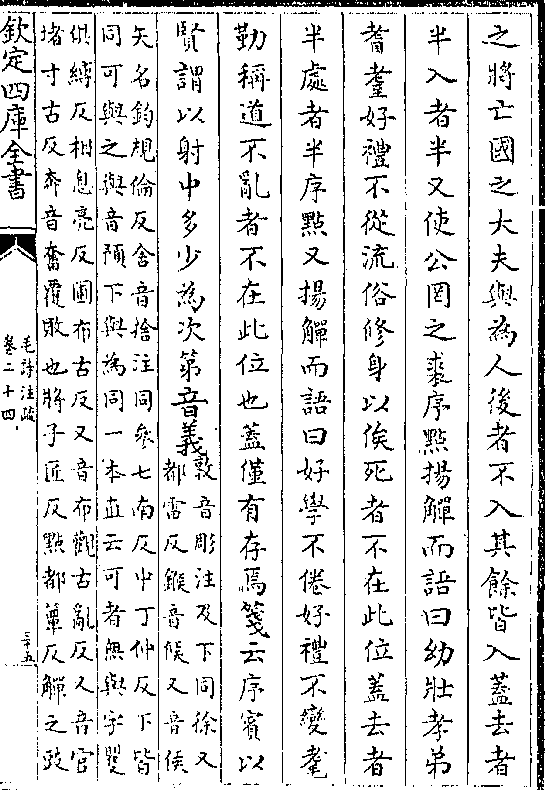 之將亡國之大夫與為人後者不入其餘皆入蓋去者
半入者半又使公罔之裘序㸃揚觶而語曰幼壯孝弟
耆耋好禮不從流俗修身以俟死者不在此位蓋去者
半處者半序㸃又揚觶而語曰好學不倦好禮不變耄
勤稱道不亂者不在此位也蓋僅有存焉箋云序賓以
賢謂以射中多少為次第音義敦音彫注及下同徐又
都雷反鍭音侯又音候
矢名鈞規倫反舍音捨注同參七南反中丁仲反下皆
同可與之與音預下與為同一本直云可者無與字矍
俱縛反相息亮反圃布古反又音布觀古亂反又音官
堵丁古反奔音奮覆敗也將子匠反㸃都簟反觶之豉
欽定四庫全書
毛詩注疏
卷二十四
三十五